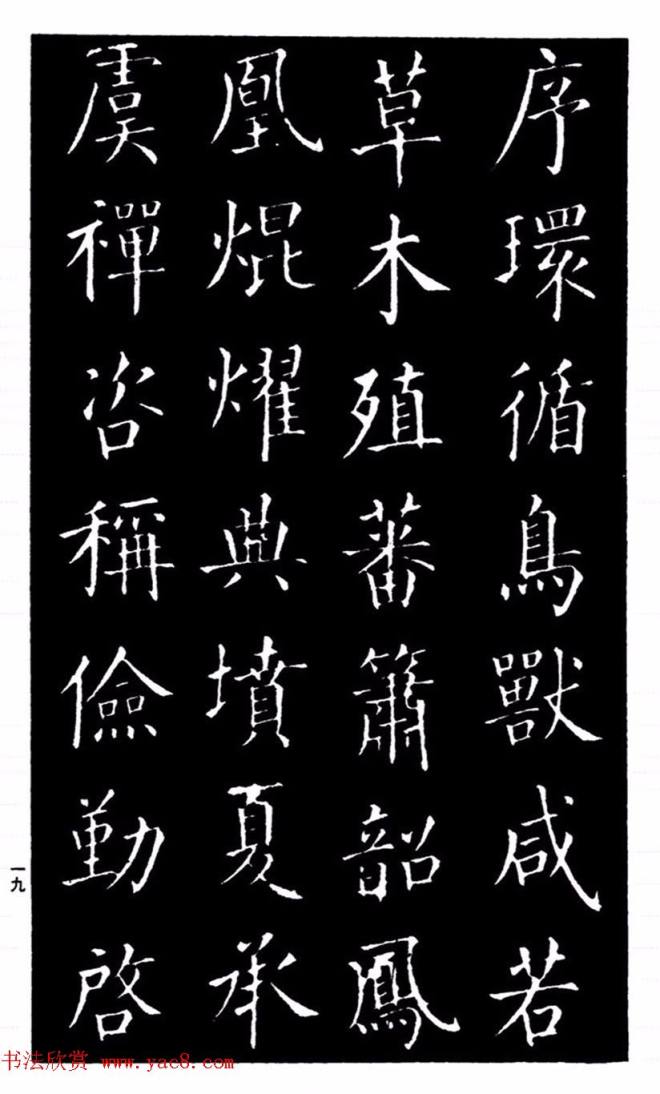 序環循鳥獸咸若
草木殖蕃簫韶鳳
凰焜燿典墳夏承
虞禪咨稱儉勤啓
一九
书法欣赏 www.yac8.com